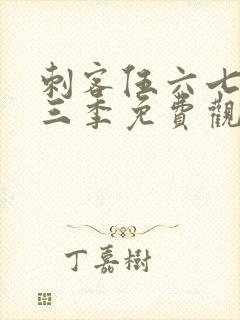 刺客伍六七
三季免費觀
丁嘉樹